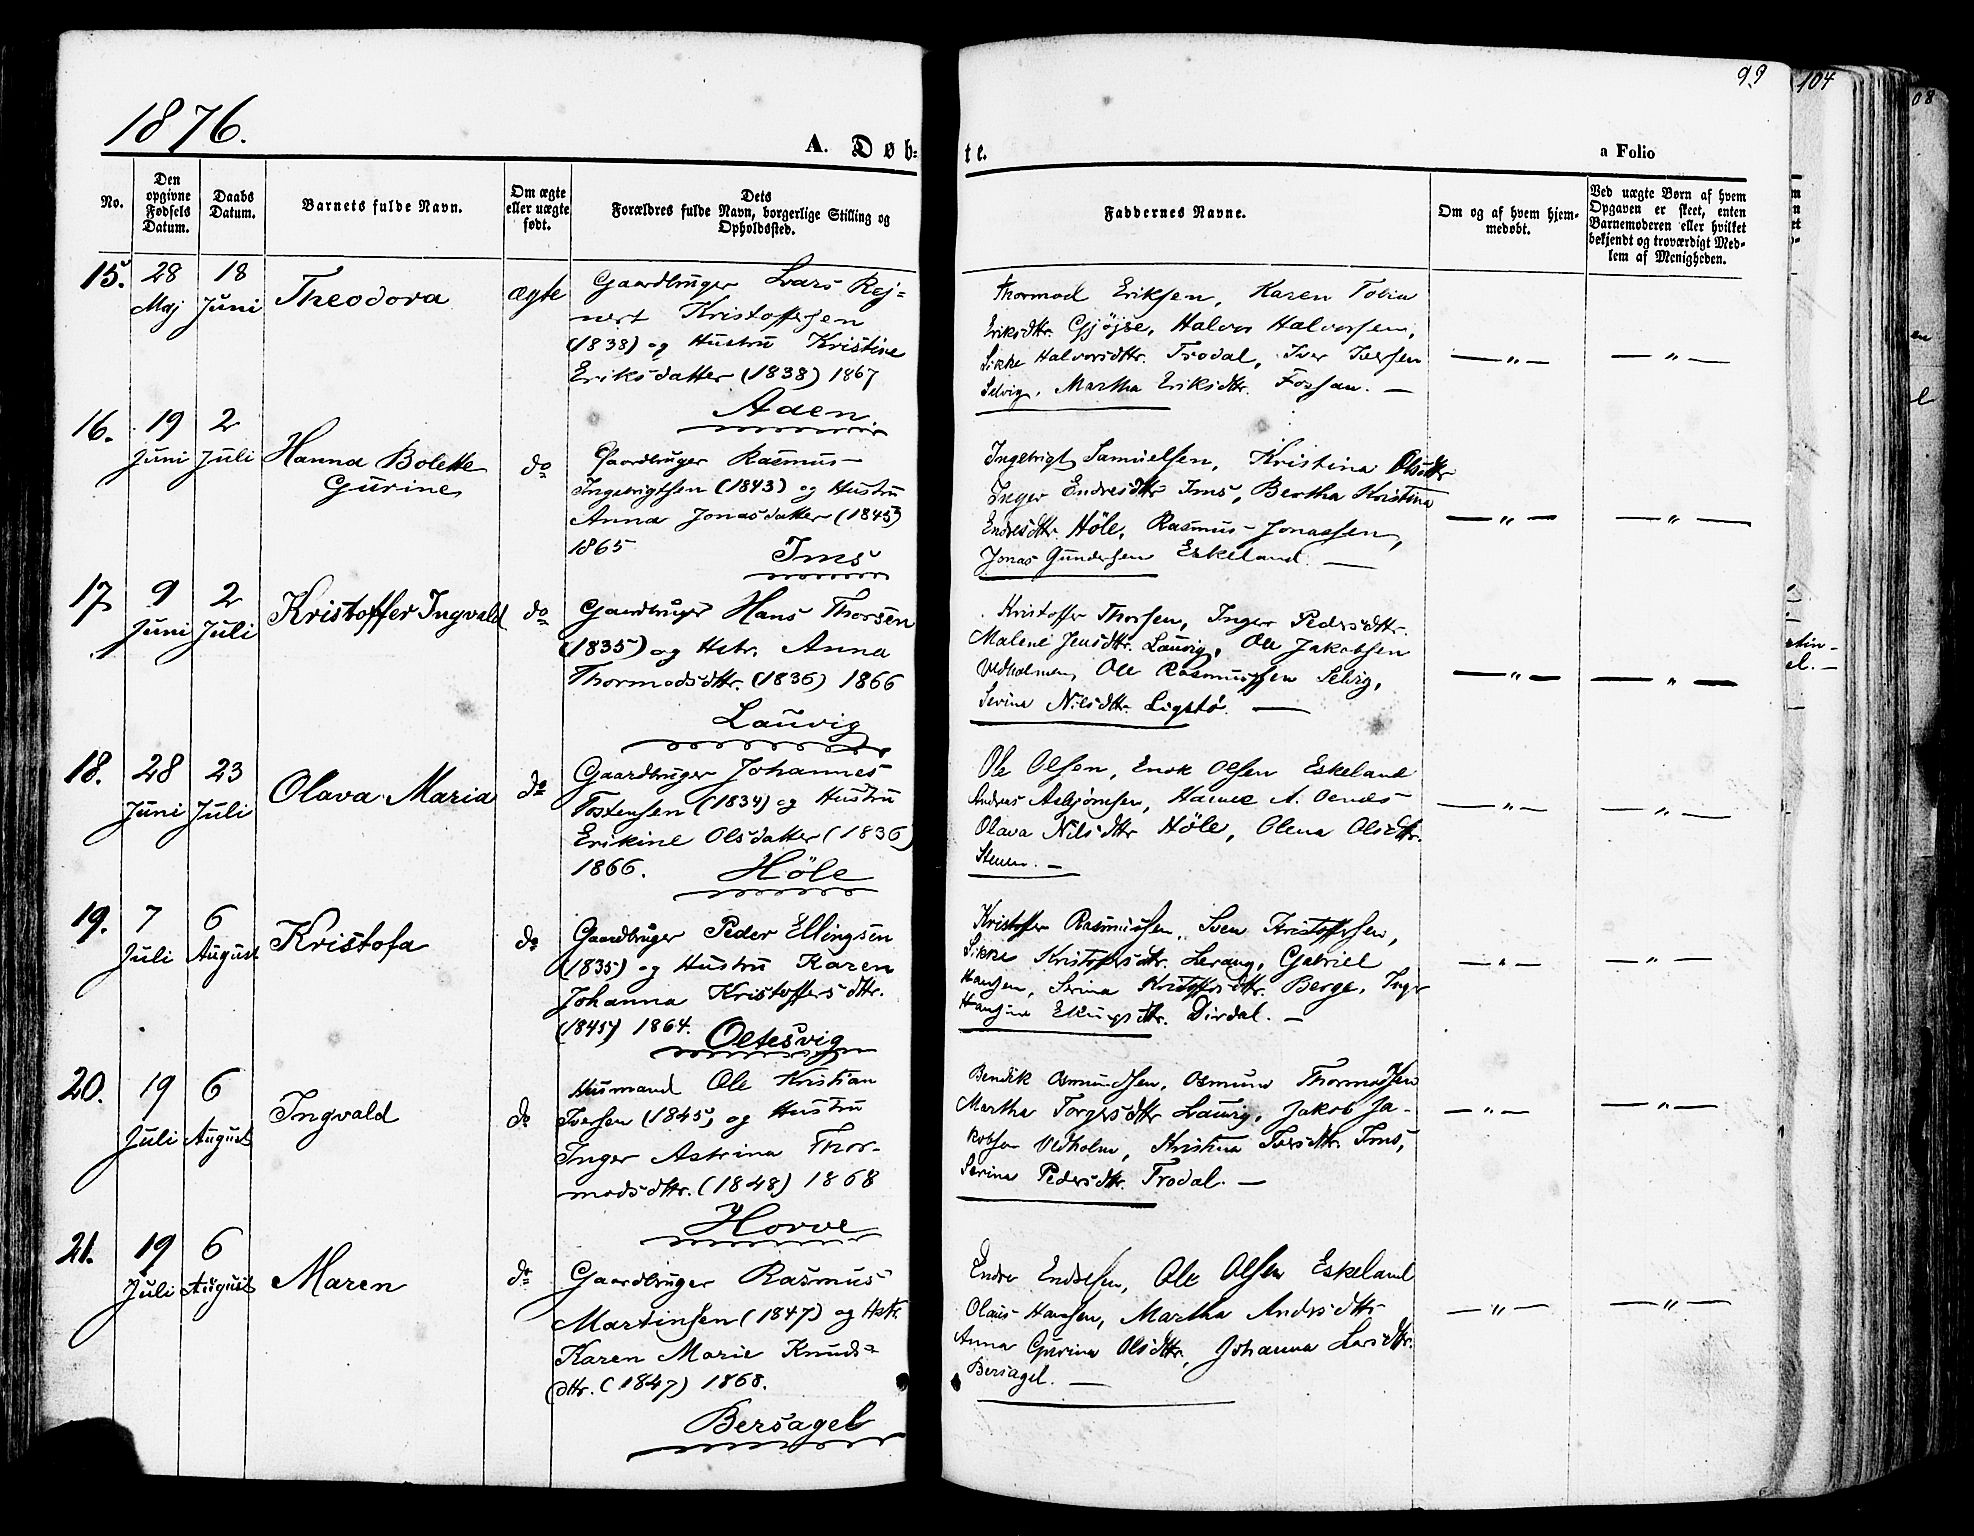 1876.
A. Døb=
te.
a Folio
99
104
08
No.
Den opgivne Fødsels Datum.
Daabs Datum.
Barnets fulde Navn.
Om ægte eller uægte født.
Dets Forældres fulde Navn, borgerlige Stilling og Opholdssted.
Faddernes Navne.
Om og af hvem hjem-
medøbt.
Ved uægte Børn af hvem
Opgaven er skeet, enten
Barnemoderen eller hvilket
bekjendt og troværdigt Med-
lem af Menigheden.
15. 28 Maj 18 Juni Theodora ægte
Gaardbruger Lars Rej=
nert Kristoffersen
(1838) og Hustru Kristine
Eriksdatter (1838) 1867
Aden
Thormod Eriksen, Karen Tobia
Eriksdttr. Gjøjse, Halvor Halvorsen,
Sikke Halvorsdttr. Trodal, Iver Iversen
Selvig, Martha Eriksdttr. Fossan. —
— " — — " —
16. 19 Juni 2 Juli Hanna Bolette
Gurine do
Gaardbruger Rasmus
Ingebrigtsen (1843) og Hustru
Anna Jonasdatter (1845)
1865
Ims
Ingebrigt Samuelsen, Kristina Olsdttr
Inger Endresdttr Ims, Bertha Kristina
Endresdttr. Höle, Rasmus Jonassen,
Jonas Gundersen Eskeland. —
— " — — " —
17. 9 Juni 2 Juli Kristoffer Ingvald do
Gaardbruger Hans Thorsen
(1835) og Hstr. Anna
Thormodsdttr. (1836) 1866
Lauvig
Kristoffer Thorsen, Inger Pedersdttr.
Malene Jensdttr. Lauvig, Ole Jakobsen
Vedholmen, Ole Rasmussen Selvig,
Serine Nilsdttr. Ligstø. —
— " — — " —
18. 28 Juni 23 Juli Olava Maria do
Gaardbruger Johannes
Tostensen (1834) og Hustru
Erikine Olsdatter (1836)
1866.
Höle
Ole Olsen, Enok Olsen Eskeland
Andreas Asbjørnsen, A.
Olava Nilsdttr Höle, Olena Olsdttr.
— " — — " —
19. 7 Juli 6 August Kristofa do
Gaardbruger Peder Ellingsen
(1835) og Hustru Karen
Johanna Kristoffersdttr.
(1845) 1864.
Oltesvig
Kristoffer Rasmussen, Sven Kristoffersen,
Sikke Kristoffersdttr. Lerang, Gabriel
Hansen, Serina Kristoffersdttr. Berge, Inger
Hansine Dirdal. —
— " — — " —
20. 19 Juli 6 August Ingvald do
Husmand Ole Kristian
Iversen (1845) og Hustru
Inger Astrina Thor-
modsdttr. (1848) 1868
Horve
Bendik Osmundsen, Osmund Thormodsen
Martha Torgersdttr Lauvig, Jakob Ja-
kobsen Vedholm, Kristina Iversdttr. Ims,
Serine Pedersdttr. Trodal. —
— " — — " —
21. 19 Juli 6 August Maren do
Gaardbruger Rasmus
Martinsen (1847) og Hstr.
Karen Marie Knuds=
dttr. (1847) 1868.
Bersagel
Endre Endresen, Ole Olsen Eskeland
Olaus Hansen, Martha Andersdttr
Anna Gurina Olsdttr, Johanna Larsdttr.
Bersagel. —
— " — — " —